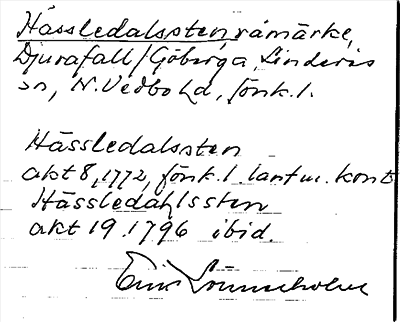 Hässledalssten, råmärke,
Djurafall/Göberga, Linderås
sn, N. Vedbo hd, Jönk. l.
Hässledalssten
akt 8, 1772, Jönk. l lantm. kont
Hässledahlssten
akt 19. 1796 ibid.
Erik